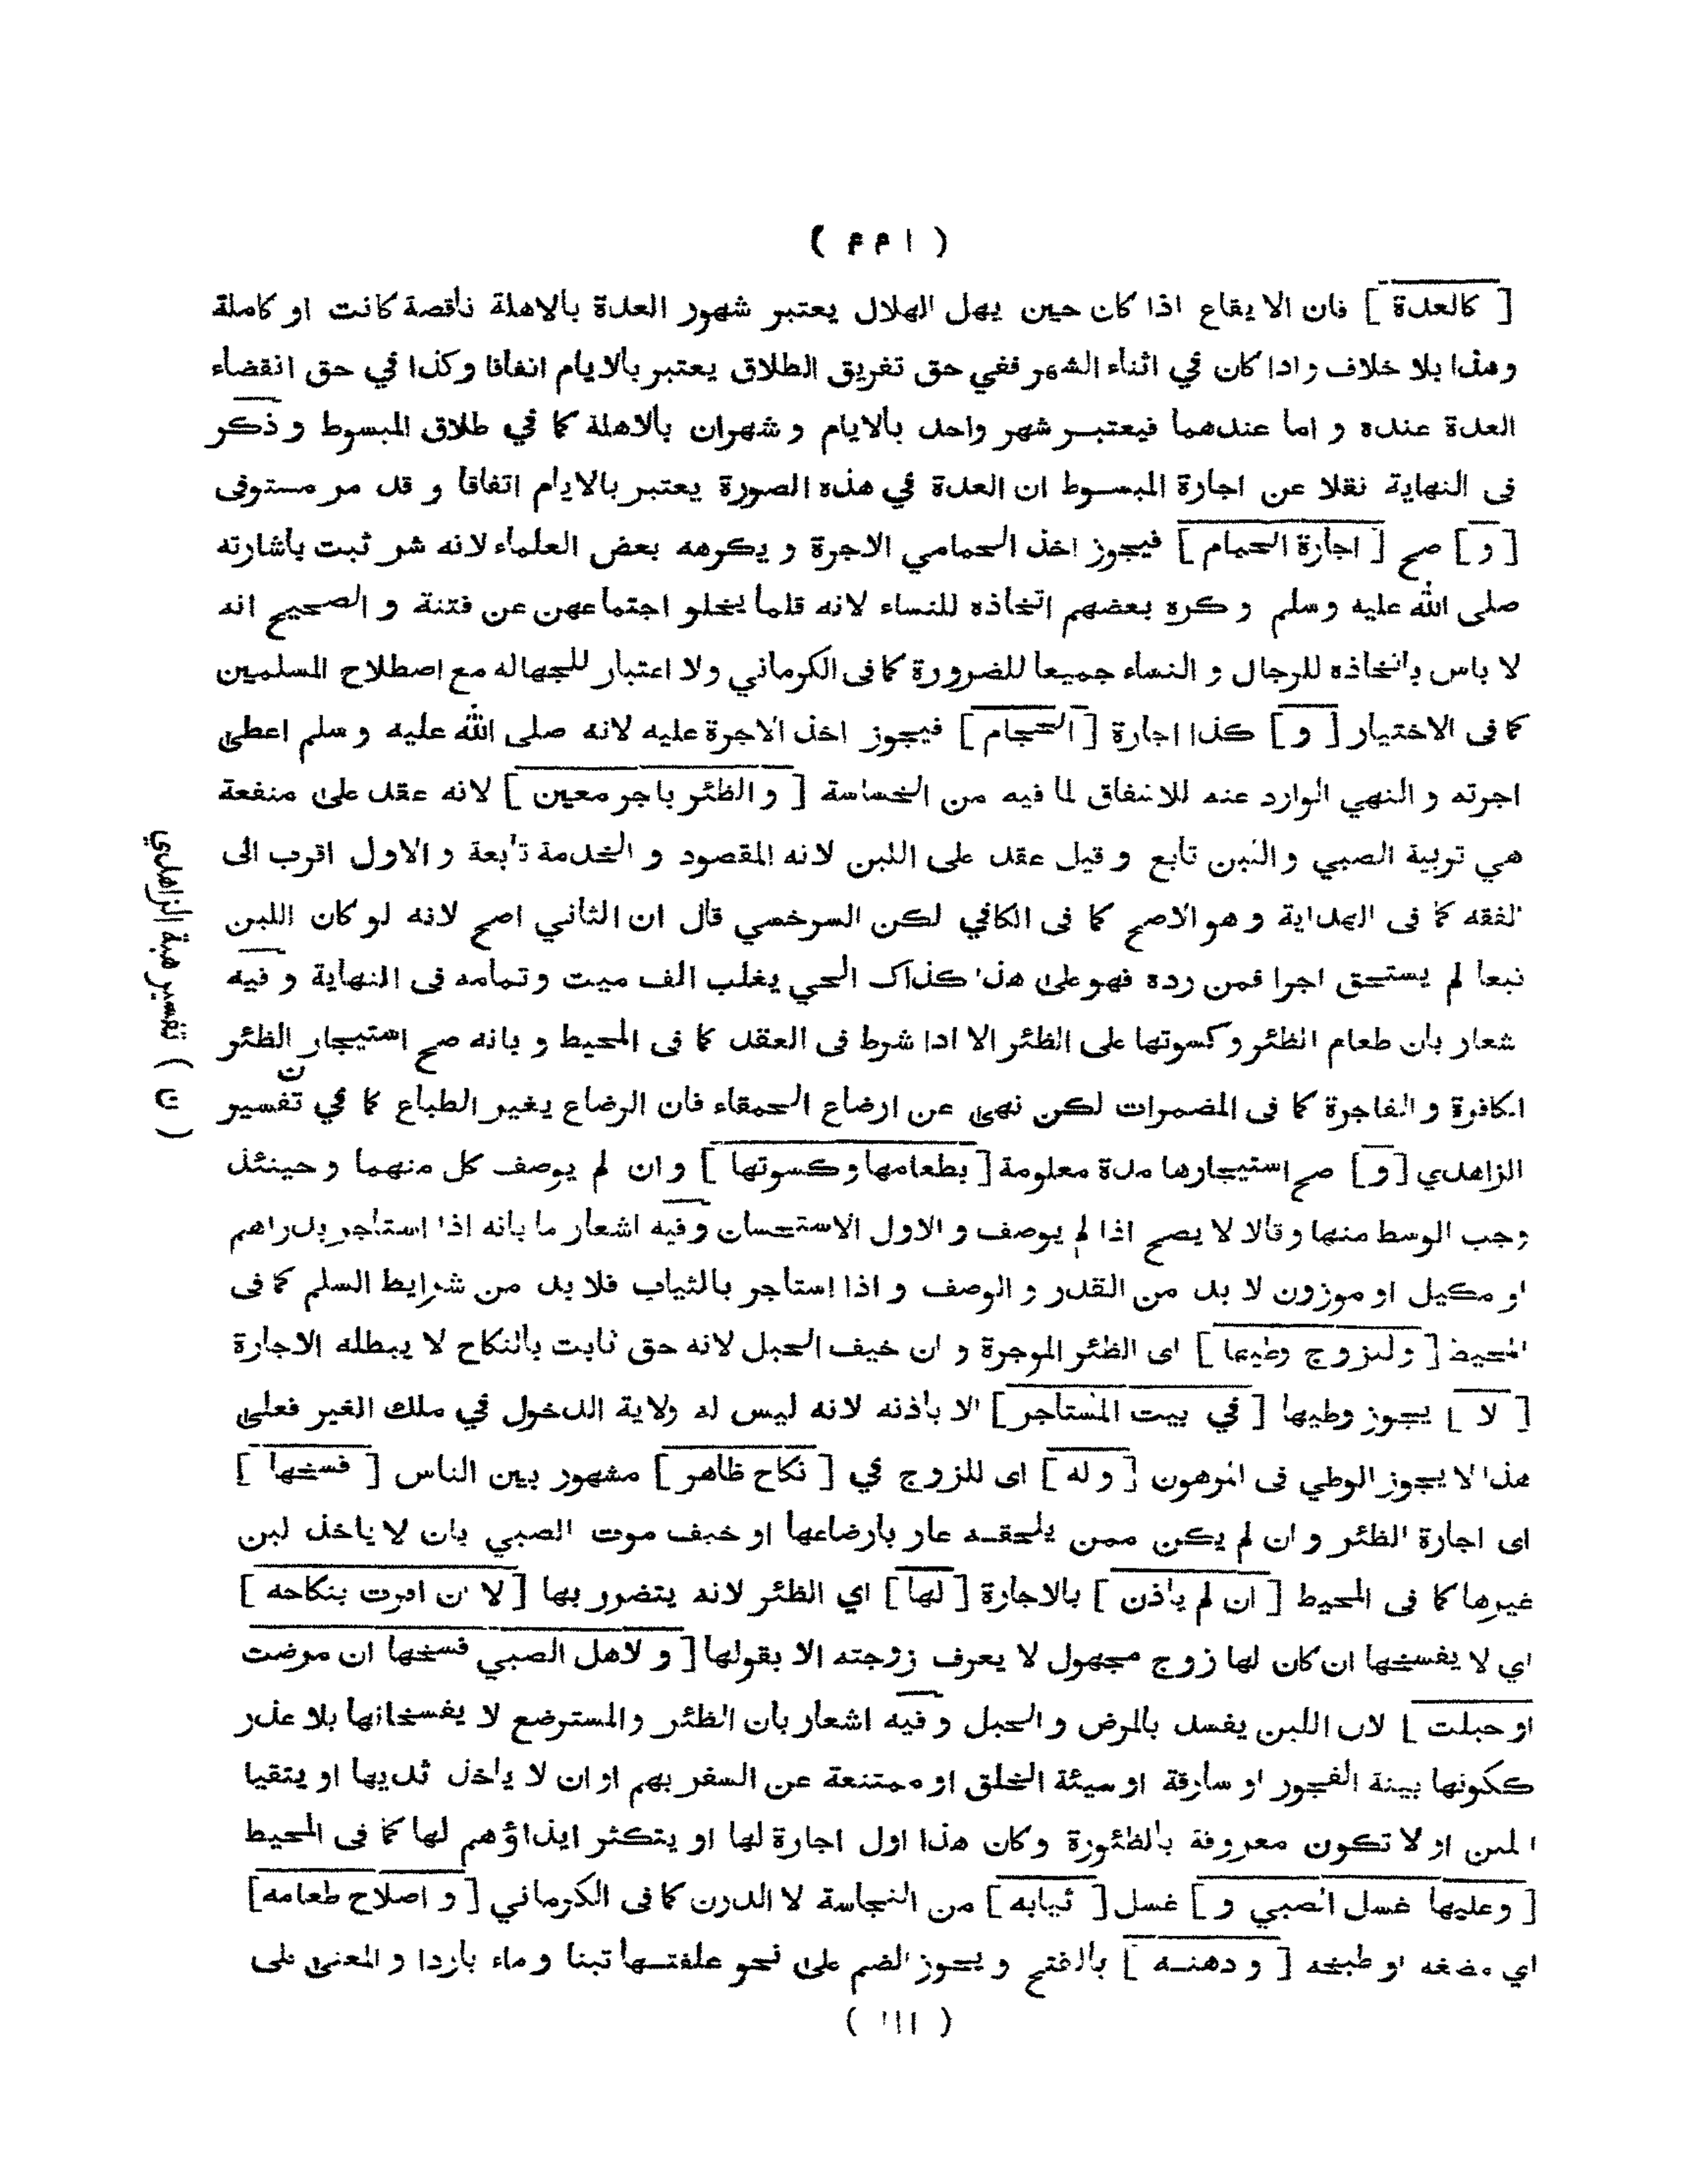 ( ١٤٤ )
[ كالعدة ] فان الايقاع اذا كان حين يهل الهلال يعتبر شهور العدة بالاهلة ناقصة كانت او كاملة
وهذا بلا خلاف واذا كان في اثناء الشهر ففي حق تفريق الطلاق يعتبر بالايام اتفاقا وكذا في حق انقضاء
العدة عنده و اما عندهما فيعتبر شهر واحد بالايام و شهران بالاهلة كما في طلاق المبسوط و ذكر
فى النهاية نقلا عن اجارة المبسوط ان العدة في هذه الصورة يعتبر بالايام اتفاقا و قد مر مستوفى
[ و ] صح [ اجارة الحمام ] فيجوز اخذ الحمامي الاجرة و يكرهه بعض العلماء لانه شر ثبت باشارته
صلى الله عليه وسلم و كره بعضهم اتخاذه للنساء لانه قلما يخلو اجتماعهن عن فتنة و الصحيح انه
لا باس باتخاذه للرجال و النساء جميعا للضرورة كما فى الكرماني ولا اعتبار للجهاله مع اصطلاح المسلمين
كما فى الاختيار [ و ] كذا اجارة [ الحجام ] فيجوز اخذ الاجرة عليه لانه صلى الله عليه وسلم اعطى
اجرته و النهي الوارد عنه للاشفاق لما فيه من الخساسة [ و الظئر باجر معين ] لانه عقد على منفعة
هي تربية الصبي واللبن تابع و قيل عقد على اللبن لانه المقصود و الخدمة تابعة و الاول اقرب الى
الفقه كما فى الهداية و هو الاصح كما فى الكافي لكن السرخسي قال ان الثاني اصح لانه لو كان اللبن
تبعا لم يستحق اجرا فمن رده فهو على هذا كذاك الحي يغلب الف ميت و تمامه فى النهاية و فيه
شعار بان طعام الظئر و كسوتها على الظئر الا اذا شرط فى العقد كما فى المحيط و بانه صح استيجار الظئر
الكافرة و الفاجرة كما فى المضمرات لكن نهى عن ارضاع الحمقاء فان الرضاع يغير الطباع كما في تفسير
ن
الزاهدي [ و ] صح استيجارها مدة معلومة [ بطعامها و كسوتها ] و ان لم يوصف كل منهما و حينئذ
وجب الوسط منها و قالا لا يصح اذا لم يوصف و الاول الاستحسان و فيه اشعار ما بانه اذا استاجر بدراهم
او مكيل او موزون لا بد من القدر و الوصف و اذا استاجر بالثياب فلا بد من شرايط السلم كما فى
المحيط [ و للزوج وطيها ] اى الظئر الموجرة و ان خيف الحبل لانه حق ثابت بالنكاح لا يبطله الاجارة
[ لا ] يجوز وطيها [ في بيت المستاجر ] الا باذنه لانه ليس له ولاية الدخول في ملك الغير فعلى
هذا لا يجوز الوطي فى المرهون [ و له ] اى للزوج في [ نكاح ظاهر ] مشهور بين الناس [ فسخها ]
اى اجارة الظئر و ان لم يكن ممن يلحقه عار بارضاعها او خيف موت الصبي بان لا ياخذ لبن
غيرها كما فى المحيط [ ان لم ياذن ] بالاجارة [ لها ] اي الظئر لانه يتضرر بها [ لا ان اقرت بنكاحه ]
اي لا يفسخها ان كان لها زوج مجهول لا يعرف زوجته الا بقولها [ و لاهل الصبي فسخها ان مرضت
او حبلت ] لان اللبن يفسد بالمرض و الحبل و فيه اشعار بان الظئر و المسترضع لا يفسخانها بلا عذر
ككونها بينة الفجور او سارقة او سيئة الخلق او ممتنعة عن السفر بهم او ان لا ياخذ ثديها او يتقيا
اللبن او لا تكون معروفة بالظئورة و كان هذا اول اجارة لها او يتكثر ايذاؤهم لها كما فى المحيط
[ و عليها غسل الصبي و ] غسل [ ثيابه ] من النجاسة لا الدرن كما فى الكرماني [ و اصلاح طعامه ]
اي مضغه او طبخه [ و دهنه ] بالفتح و يجوز الضم على نحو علفتها تبنا و ماء باردا و المعنى على
( ١١١ )
( ن ) تفسير هبة الزاهدي